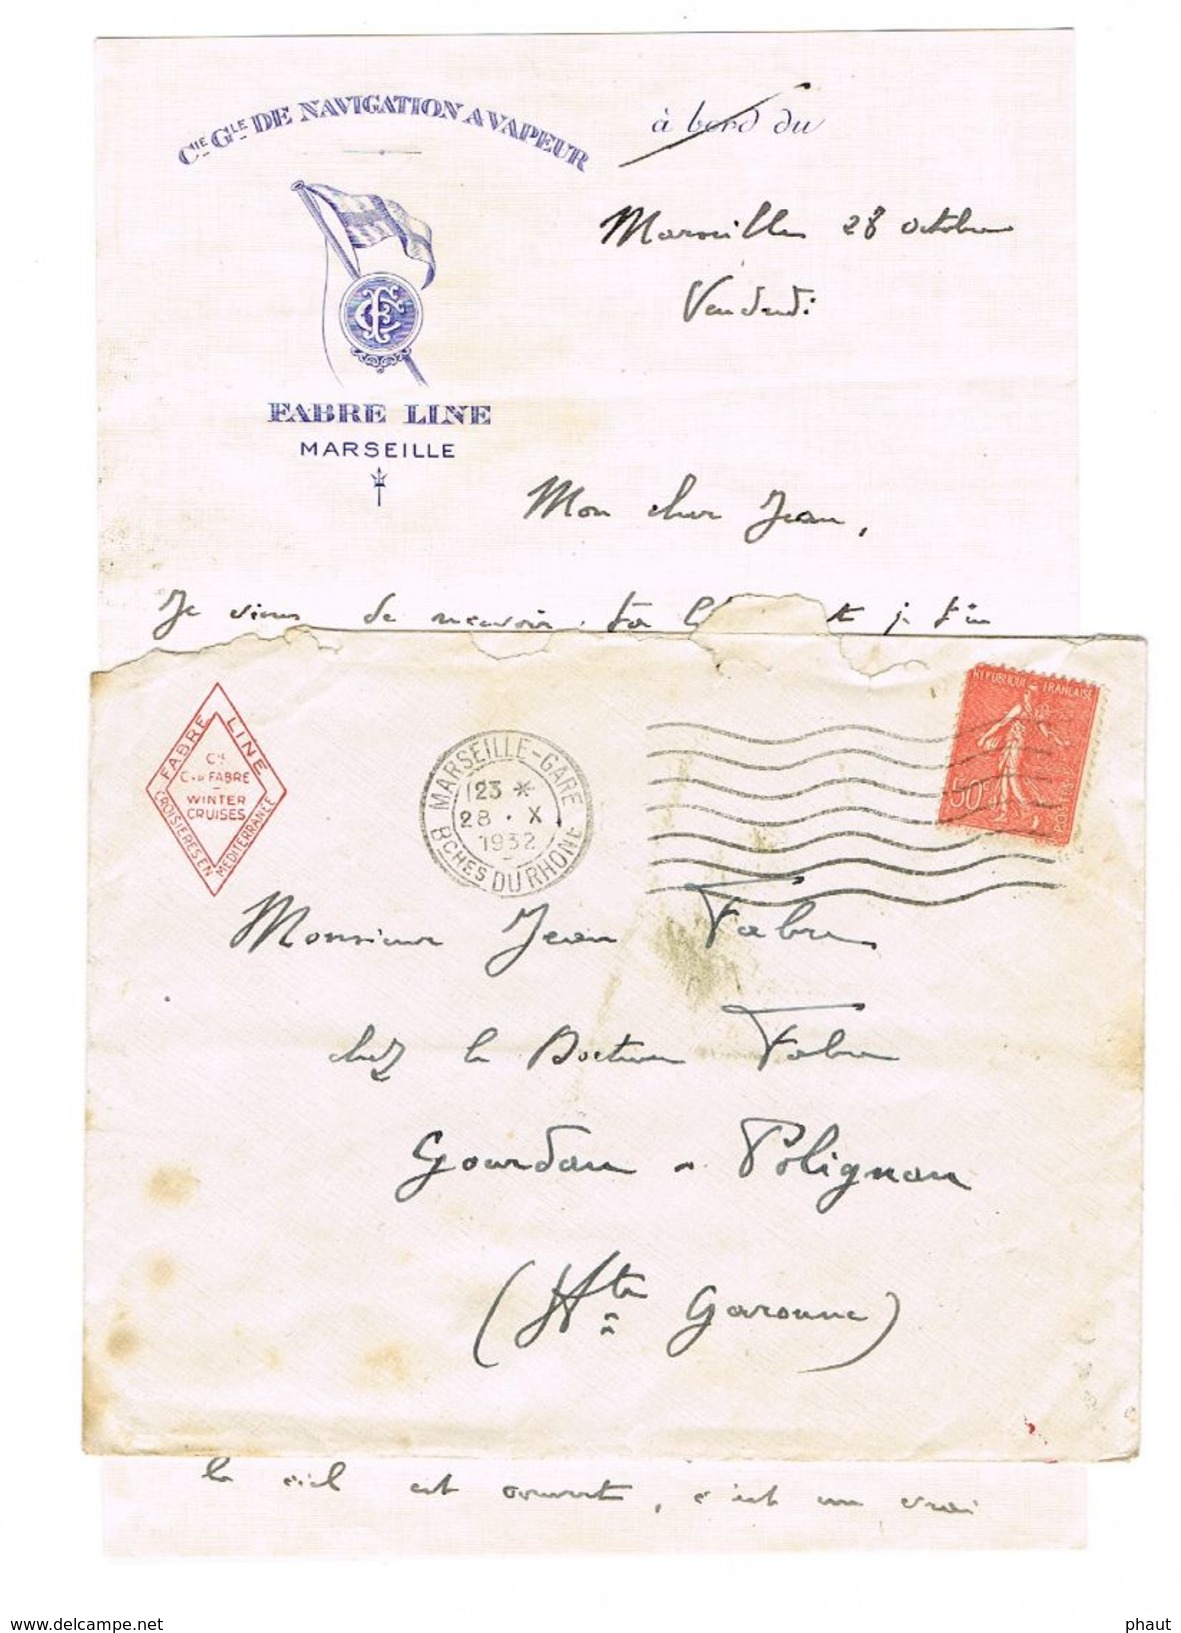 Cie Gle DE NAVIGATION A VAPEUR
à bord du
Marseille 28 octobre
Vendredi
FABRE LINE
MARSEILLE
Mon cher Jean,
Je viens de recevoir ta et je t'en
FABRE LINE
Cie
Cyp FABRE
WINTER
CRUISES
CROISIERES EN MEDITERRANEE
MARSEILLE-GARE
23 *
28 · X
1932
BCHES DU RHONE
REPUBLIQUE FRANÇAISE
50c
POSTES
Monsieur Jean Fabre
chez le Docteur Fabre
Gourdan - Polignan
(Hte Garonne)
le ciel est couvert, c'est un vrai
www.delcampe.net
phaut